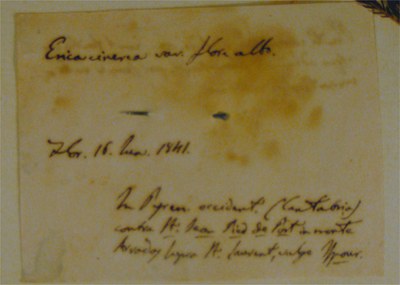 Erica cinerea var. flor. alb.
Flor. 16. Jun. 1841.
In Pyren. occident. (Cantabria)
contra St. Jean Pied de Port in monte
supra St. Laurent, vulgo